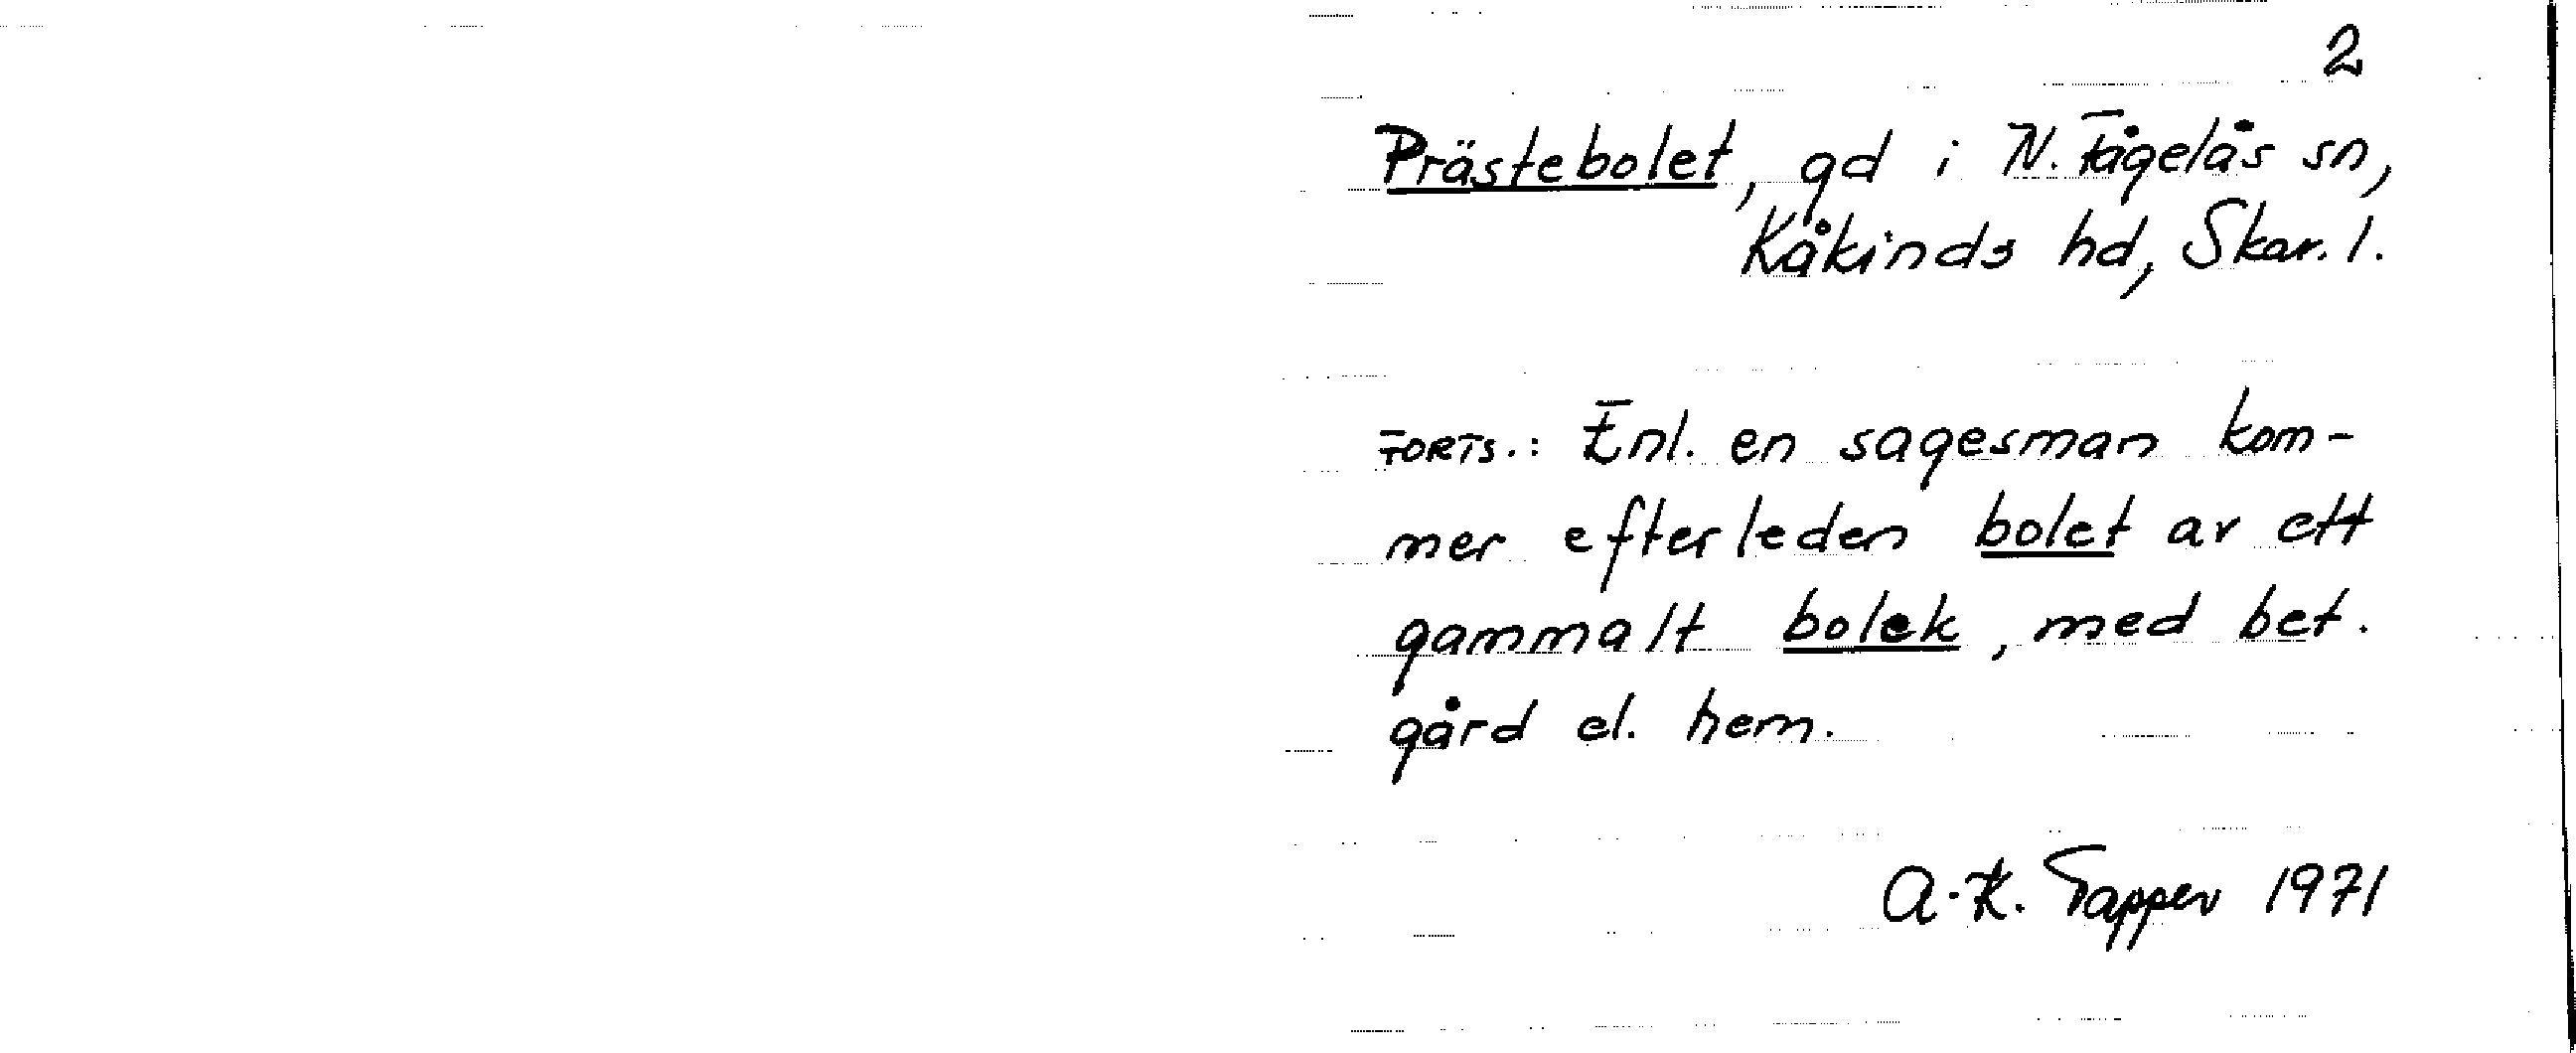 2
Prästebolet, gd i N. Fågelås sn,
Kåkinds hd, Skar. l.
FORTS.: Enl. en sagesman kom-
mer efterleden bolet av ett
gammalt bolek, med bet.
gård el. hem.
A-K. Tapper 1971